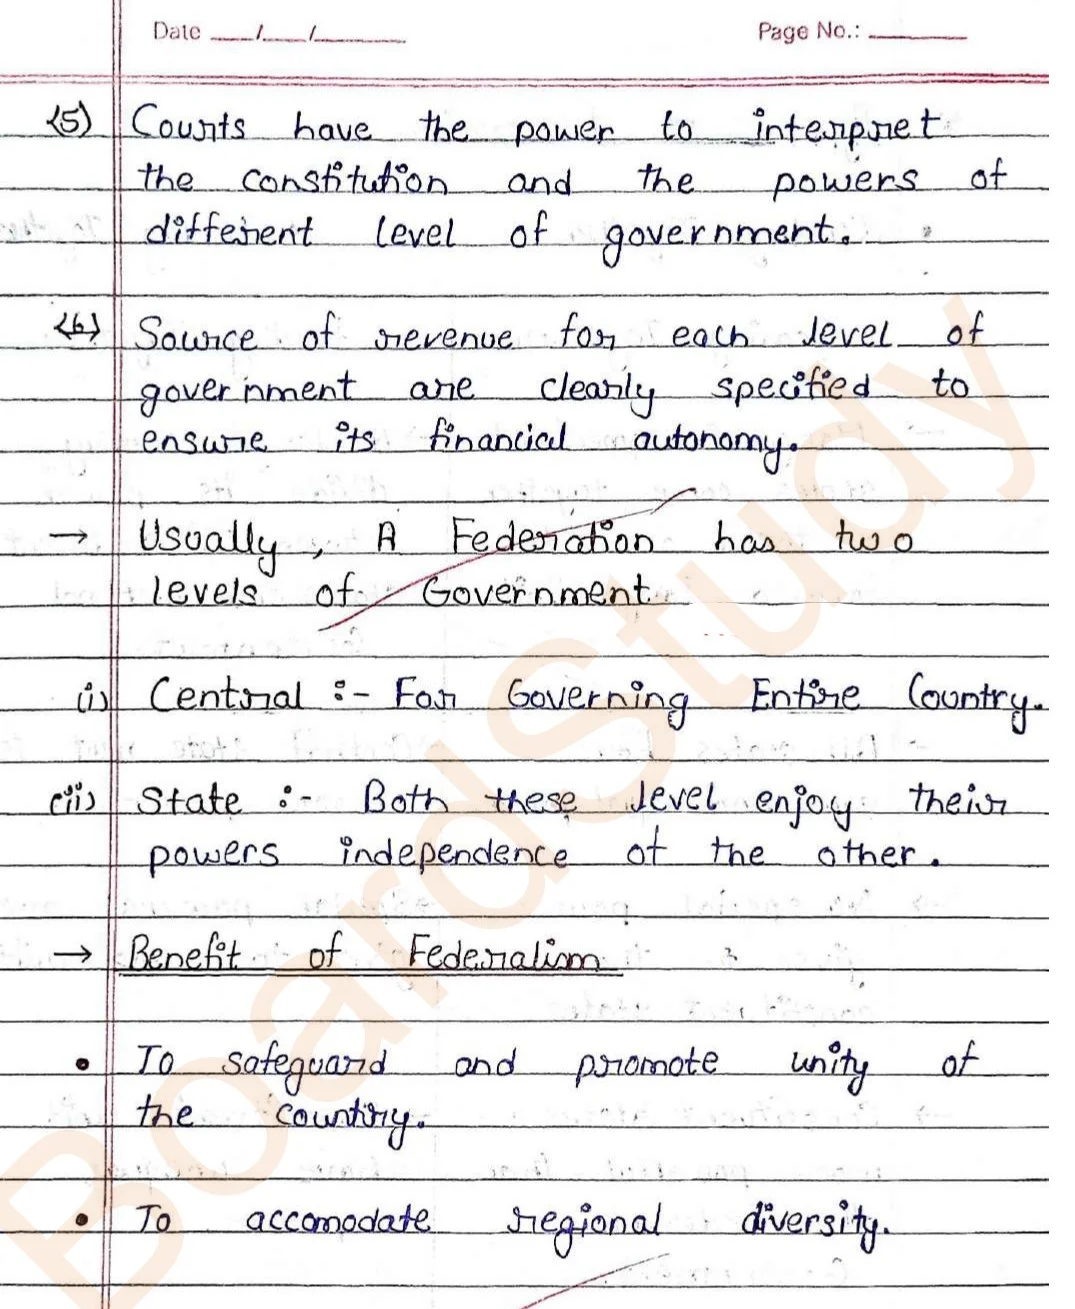 Date ___/___/______ Page No.: ______
(5) Courts have the power to interpret
the constitution and the powers of
different level of government.
(6) Source of revenue for each level of
government are clearly specified to
ensure its financial autonomy.
→ Usually, A Federation has two
levels of Government
(i) Central :- For Governing Entire Country.
(ii) State :- Both these level enjoy their
powers independence of the other.
→ Benefit of Federalism
• To safeguard and promote unity of
the country.
• To accomodate regional diversity.
BoardStudy